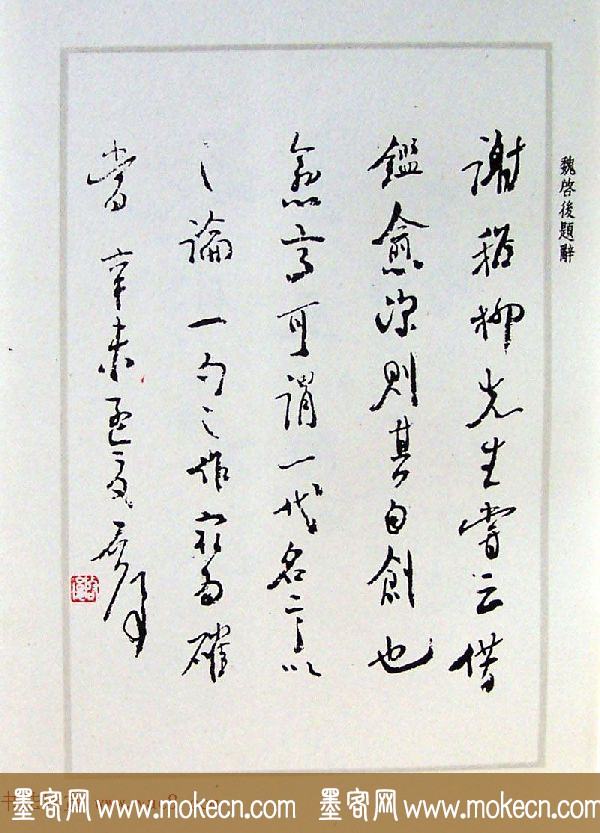 魏啓後題辭
謝稚柳先生嘗云借
鑑愈深則其自創也
愈高可謂一代名言以
之論一勺之作最為確
當 辛未孟夏 啓後
墨客网 www.mokecn.com 墨客网 www.mokecn.com